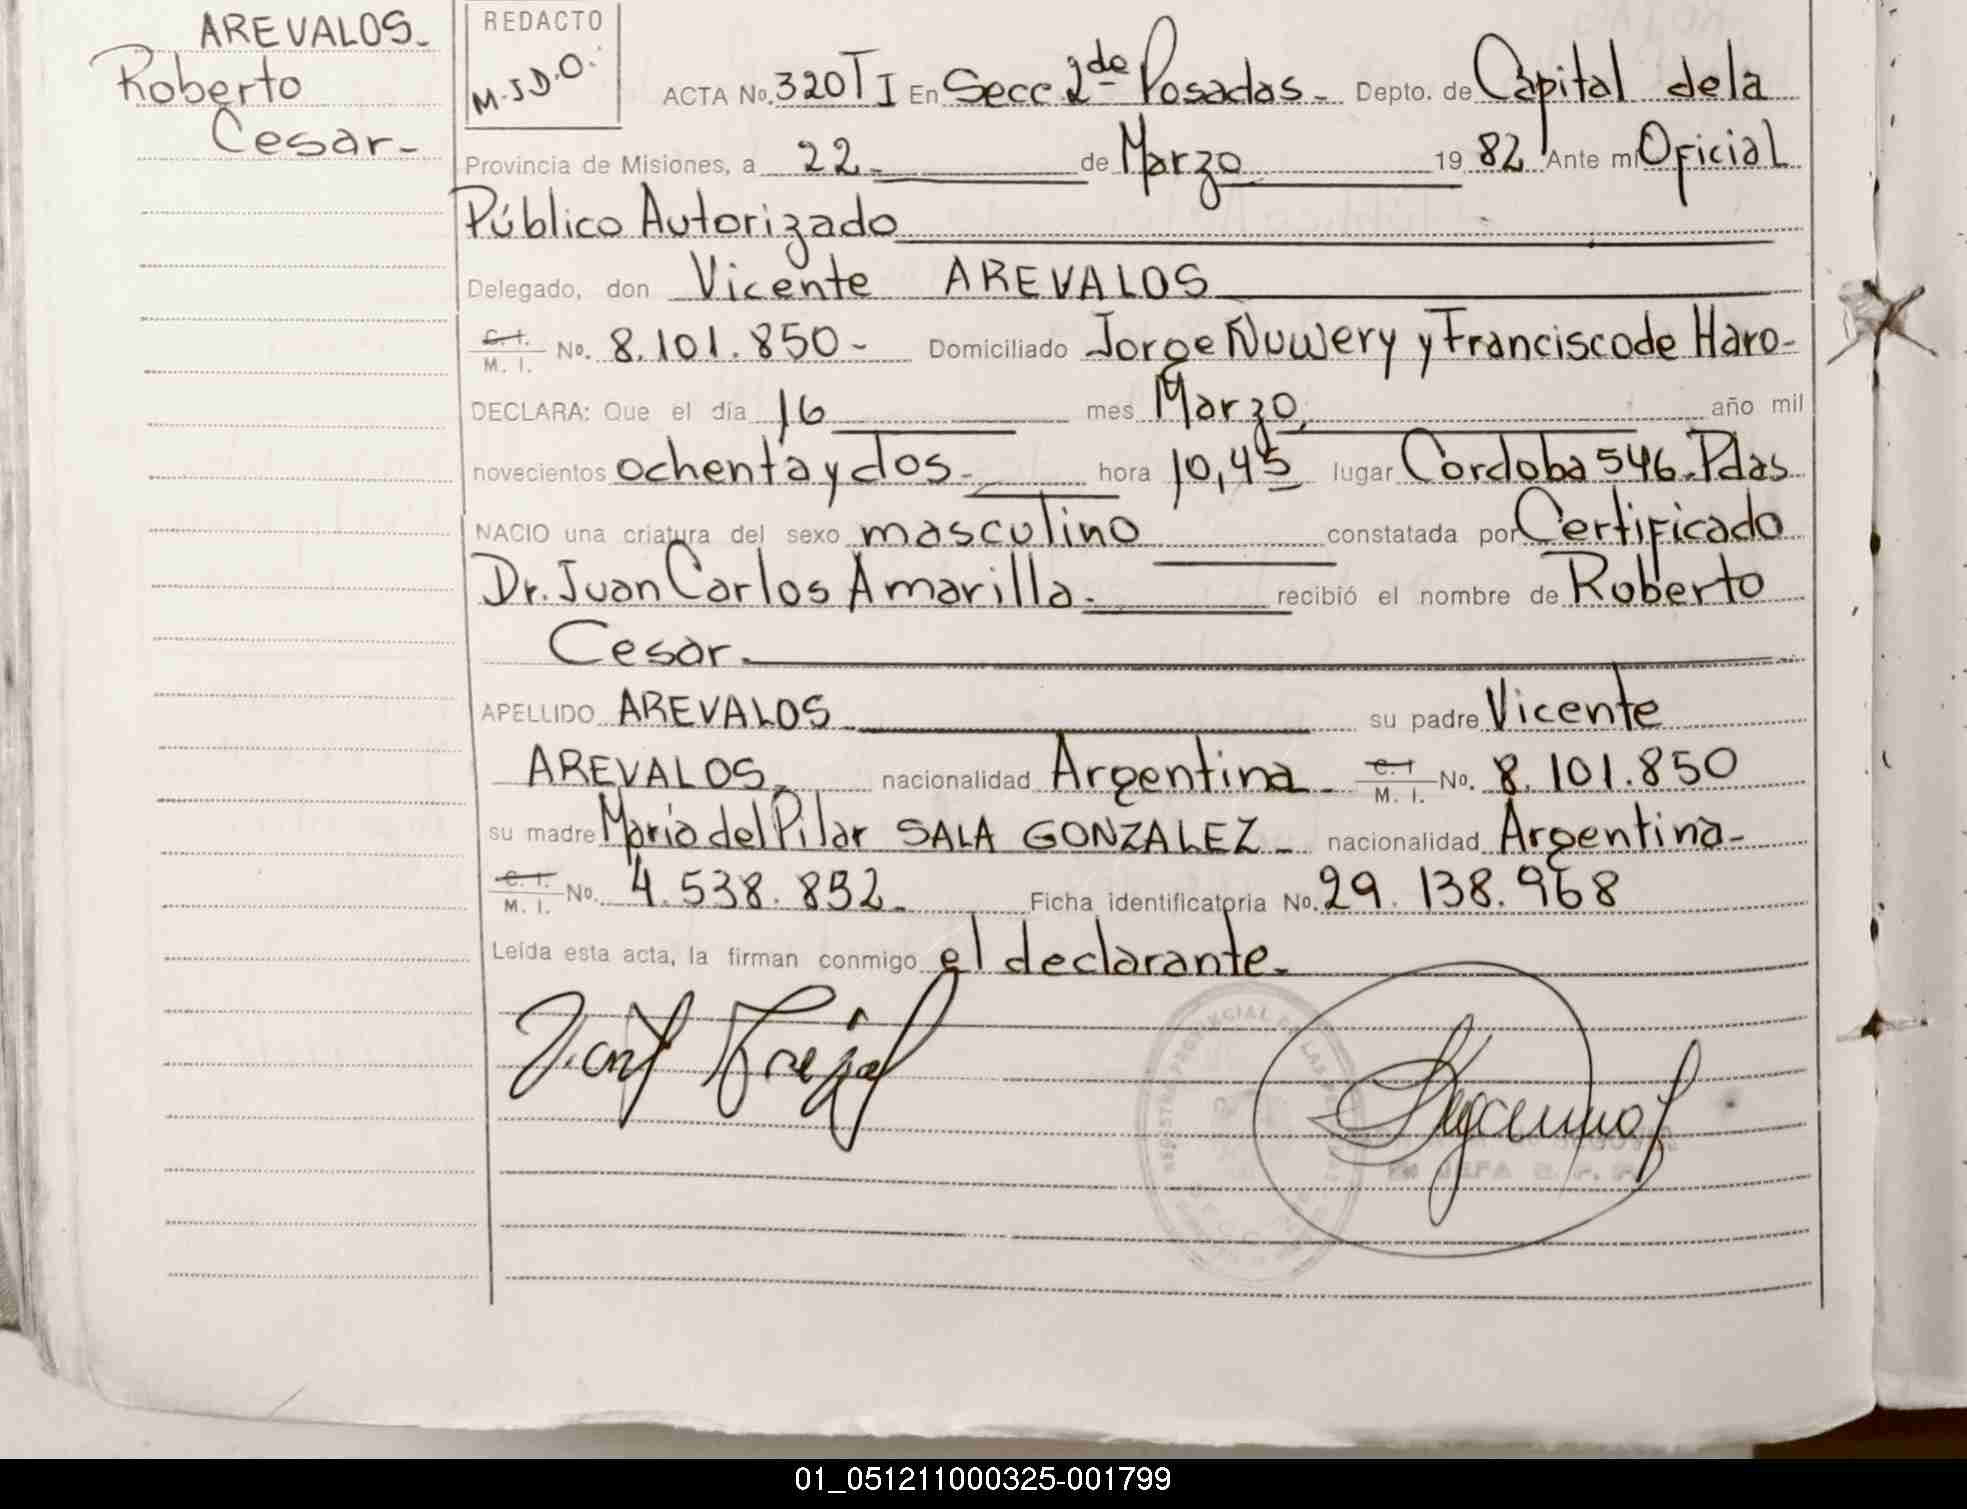 AREVALOS-
Roberto
Cesar-
REDACTO
M.J.D.O.
ACTA No. 320 T I En Secc 2de Posadas- Depto. de Capital de la
Provincia de Misiones, a 22- de Marzo 19 82 Ante mi Oficial
Público Autorizado
Delegado, don Vicente AREVALOS
C. I. M. I. No. 8.101.850- Domiciliado Jorge Nuwery y Francisco de Haro-
DECLARA: Que el día 16 mes Marzo año mil
novecientos ochenta y dos- hora 10,45 lugar Cordoba 546. Pdas
NACIO una criatura del sexo masculino constatada por Certificado
Dr. Juan Carlos Amarilla. recibió el nombre de Roberto
Cesar.
APELLIDO AREVALOS su padre Vicente
AREVALOS nacionalidad Argentina- C. I M. I. No. 8.101.850
su madre Maria del Pilar SALA GONZALEZ- nacionalidad Argentina-
C. I. M. I. No. 4.538.892- Ficha identificatoria No. 29.138.968
Leída esta acta, la firman conmigo el declarante.
01_051211000325-001799